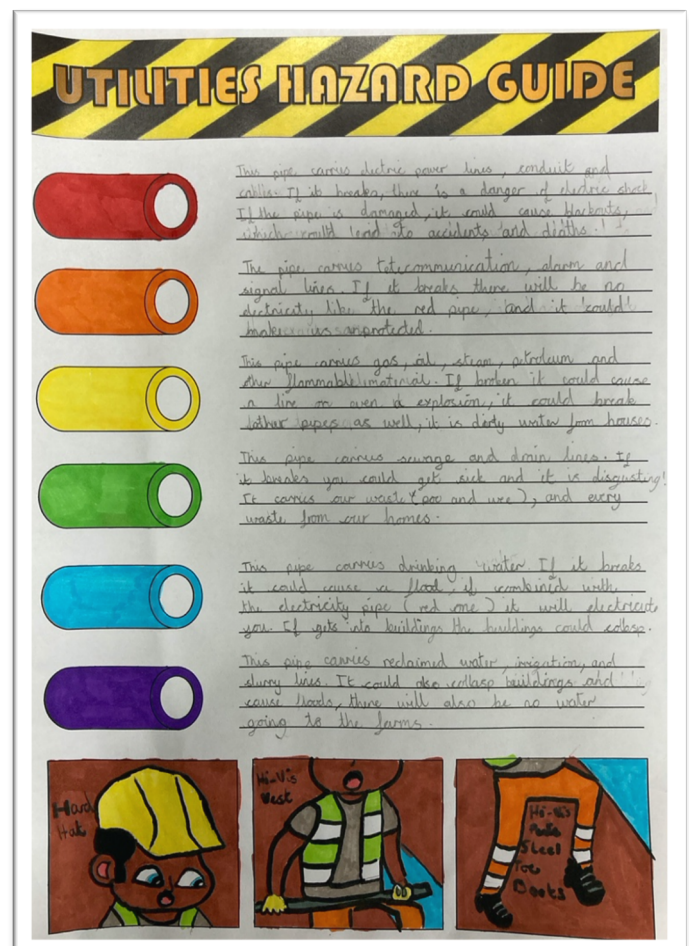 UTILITIES HAZARD GUIDE
This pipe carries electric power lines, conduit and
cables. If it breaks, there is a danger of electric shock!
If the pipe is damaged, it could cause blackouts,
which could lead to accidents and deaths!
The pipe carries telecommunication, alarm and
signal lines. If it breaks there will be no
electricity like the red pipe, and it could
make us unprotected.
This pipe carries gas, oil, steam, petroleum and
other flammable material. If broken it could cause
a fire or even a explosion, it could break
other pipes as well, it is dirty water from houses.
This pipe carries sewage and drain lines. If
it breaks you could get sick and it is disgusting!
It carries our waste (poo and wee), and every
waste from our homes.
This pipe carries drinking water If it breaks
it could cause a flood, if combined with
the electricity pipe (red one) it will electricute
you. If gets into buildings the buildings could collasp.
This pipe carries reclaimed water, irrigation, and
slurry lines. It could also collasp buildings and
cause floods, there will also be no water
going to the farms.
Hard
Hat
Hi-Vis
Vest
Hi-Vis
Pants
Steel
Toe
Boots